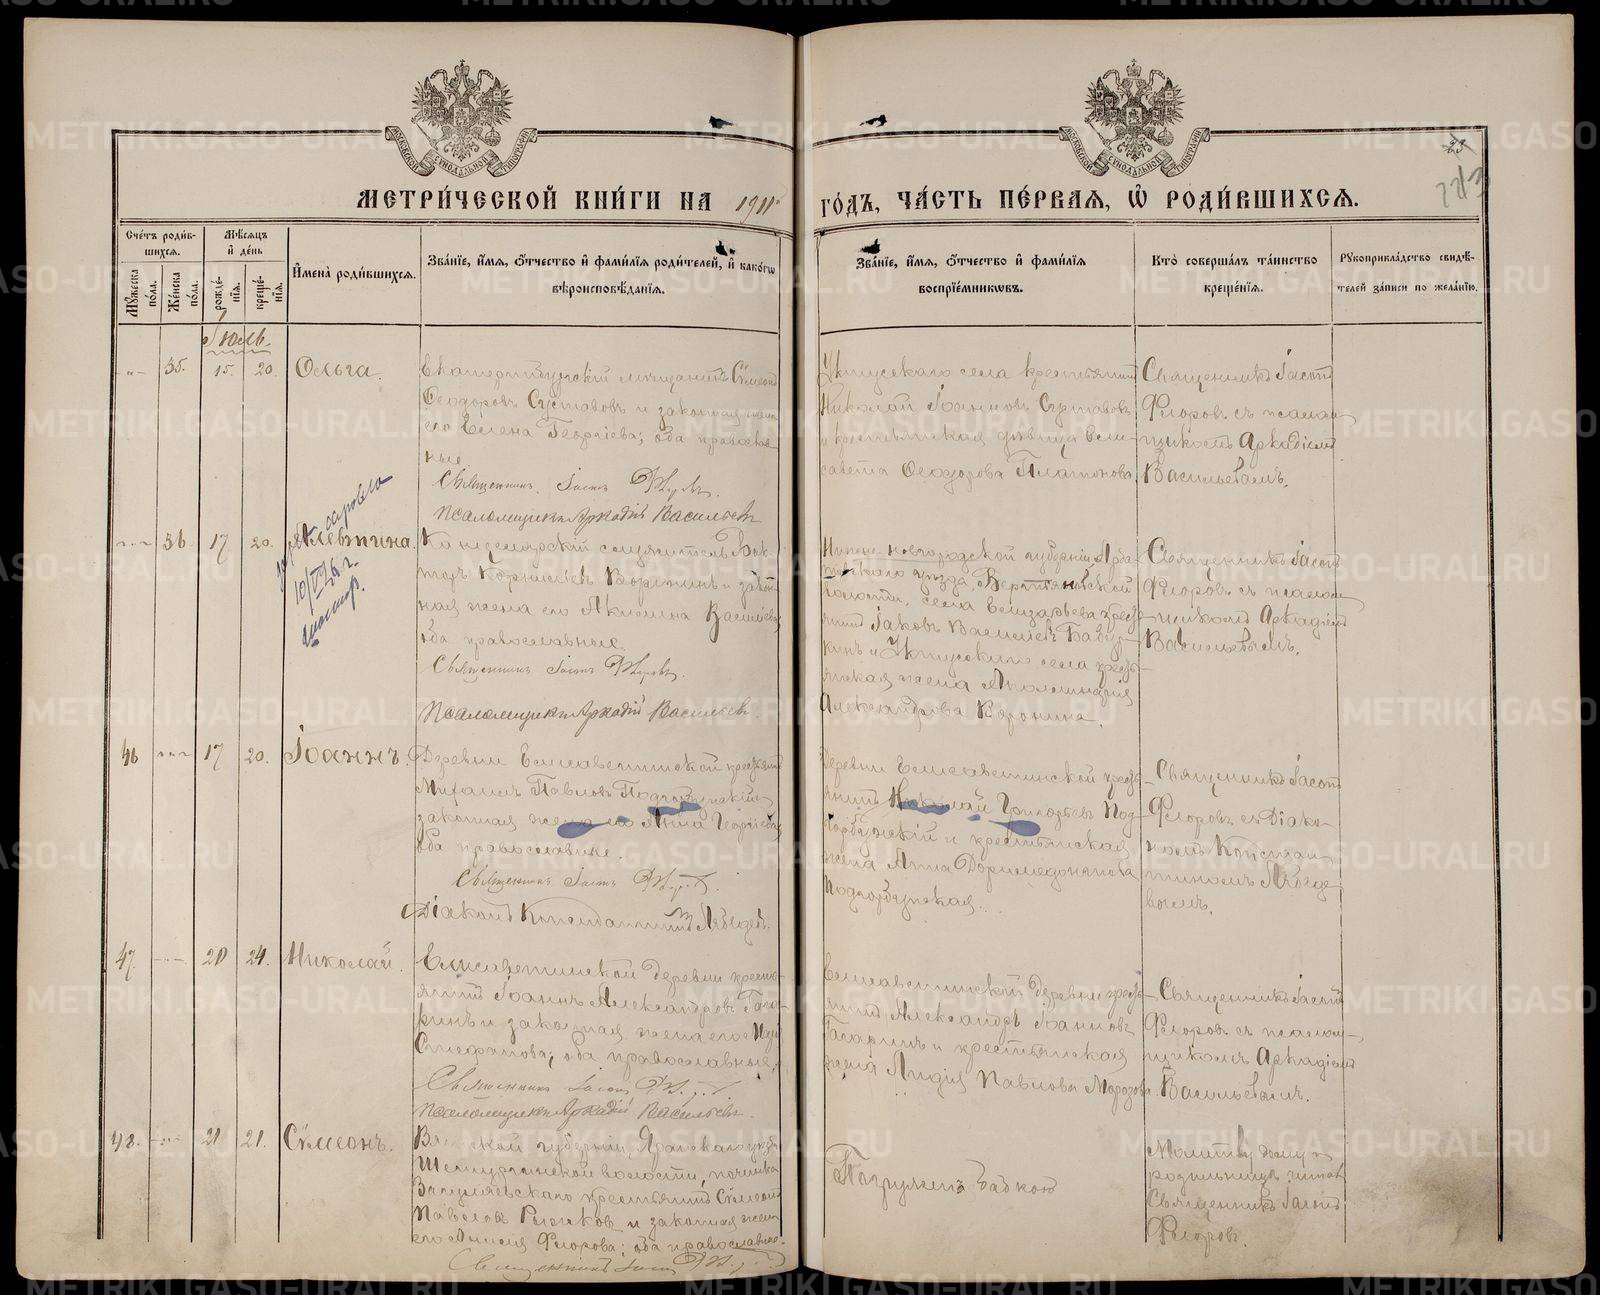 МЕТРИ́ЧЕСКОЙ КНИ́ГИ НА 1911 ГО́ДЪ, ЧА́СТЬ ПЕ́РВАЯ, Ѡ҆ РОДИ́ВШИХСЯ.
23
Сче́тъ роди́в-
шихся.
Мѣ́сяцъ
и҆ де́нь
Мꙋ́жеска по́ла.
Же́нска по́ла.
рожде́-
нїѧ.
креще́-
нїѧ.
И҆мена̀ роди́вшихся.
Зва́нїе, и҆́мѧ, ѻ҆́тчество и҆ фами́лїѧ роди́телей, и҆ како́гѡ
вѣроисповѣ́данїѧ.
Зва́нїе, и҆́мѧ, ѻ҆́тчество и҆ фами́лїѧ
воспрїе́мникѡвъ.
Кто̀ соверша́лъ та́инство
креще́нїѧ.
Рꙋкоприкла́дство свидѣ́-
телей за́писи по жела́нїю.
Іюль.
35. 15. 20. Ольга.
Екатеринбургскій мѣщанинъ Сѵмеонъ
Ѳеодоровъ Суставовъ и законная жена
его Елена Георгіева; оба православ-
ные
Священникъ Іасонъ Флоровъ.
Псаломщикъ Аркадій Васильевъ
Уктусскаго села крестьянинъ
Николай Іоанновъ Суставовъ
и крестьянская дѣвица Ели-
савета Ѳеодорова Платонова
Священникъ Іасонъ
Флоровъ съ псалом-
щикомъ Аркадіемъ
Васильевымъ.
36. 17 20. Алевтина.
10/VII 26 г.
Канцелярскій служитель Вик-
торъ Корниліевъ Воронинъ и закон-
ная жена его Акилина Василіева
оба православные.
Священникъ Іасонъ Флоровъ.
Псаломщикъ Аркадій Васильевъ.
Нижне-новгородской губерніи, Арза-
масскаго уѣзда,
волости, села Елизарьева кресть-
янинъ Іаковъ Василіевъ
и Уктусскаго села кресть-
янская жена Аполлинарія
Александрова Воронина.
Священникъ Іасонъ
Флоровъ съ псалом-
щикомъ Аркадіемъ
Васильевымъ.
46 17 20. Іоаннъ.
Деревни Елисаветинской крестьянинъ
Михаилъ Павловъ Подгорбунскій и
законная жена его Анна Георгіева
оба православные.
Священникъ Іасонъ Флоровъ.
Діаконъ Константинъ Лебедевъ.
Деревни Елисаветинской кресть-
янинъ Николай Григорьевъ Под-
горбунскій и крестьянская
жена Анна Доримедонтова
Подгорбунская.
Священникъ Іасонъ
Флоровъ съ Діако-
номъ Констан-
тиномъ Лебеде-
вымъ.
47. 20 24. Николай.
Елисаветинской деревни кресть-
янинъ Іоаннъ Александровъ Гага-
ринъ и законная жена его
Стефанова; оба православные.
Священникъ Іасонъ Флоровъ.
Псаломщикъ Аркадій Васильевъ.
Елисаветинской деревни кресть-
янинъ Александръ Іоанновъ
Гагаринъ и крестьянская
жена Лидія Павлова Морозова.
Священникъ Іасонъ
Флоровъ съ псалом-
щикомъ Аркадіемъ
Васильевымъ.
48. 21 21. Сѵмеонъ.
Вятской губерніи, Яранскаго уѣзда
волости, починка
крестьянинъ Сѵмеонъ
Павловъ Рыжковъ и законная жена
его Анисія Флорова; оба православные.
Священникъ Іасонъ Флоровъ.
Погруженъ бабкою
Молитву дому и
родильницѣ читалъ
Священникъ Іасонъ
Флоровъ.
METRIKI.GASO-URAL.RU